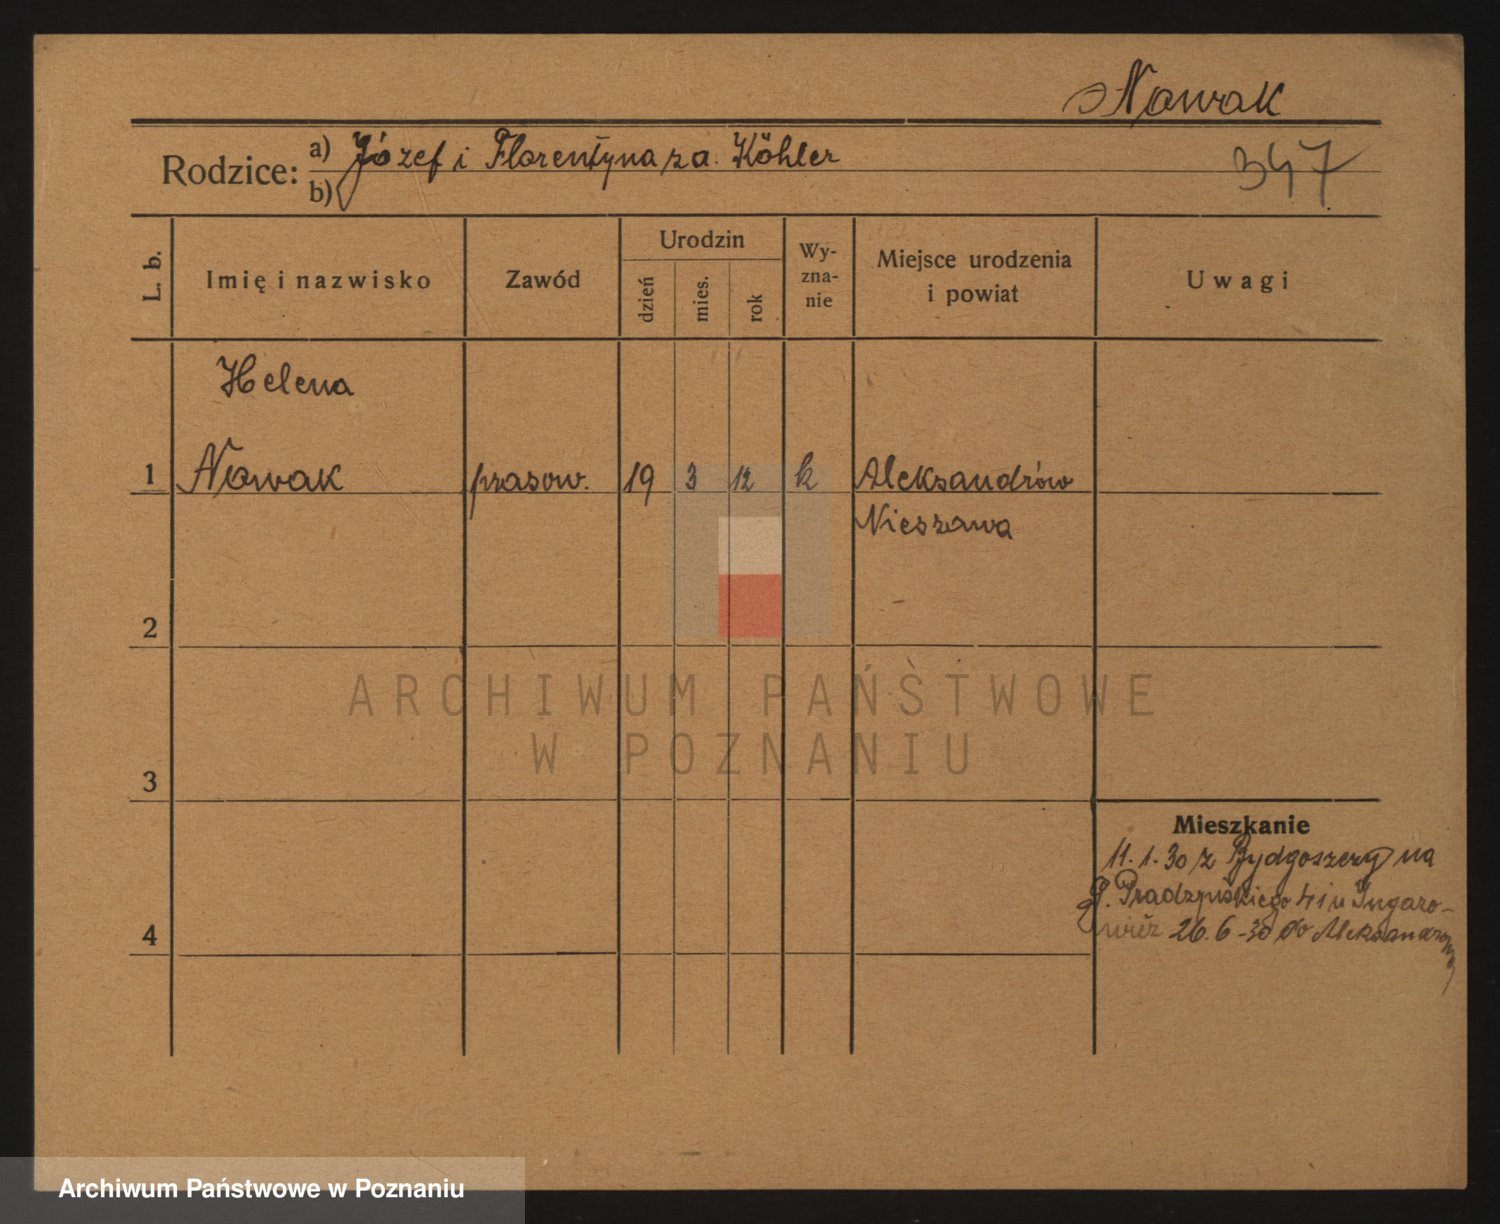 Nowak
Rodzice: a) Józef i Florentyna z d. Köhler
b)
347
L. b.
Imię i nazwisko
Zawód
Urodzin
dzień
mies.
rok
Wy-
zna-
nie
Miejsce urodzenia
i powiat
Uwagi
Helena
1 Nowak prasow. 19 3 12 k Aleksandrów
Nieszawa
2
3
4
Mieszkanie
11. 1. 30 z Bydgoszczy na
Prądzyńskiego 41 u
26. 6 - 30 do
ARCHIWUM PAŃSTWOWE
W POZNANIU
Archiwum Państwowe w Poznaniu